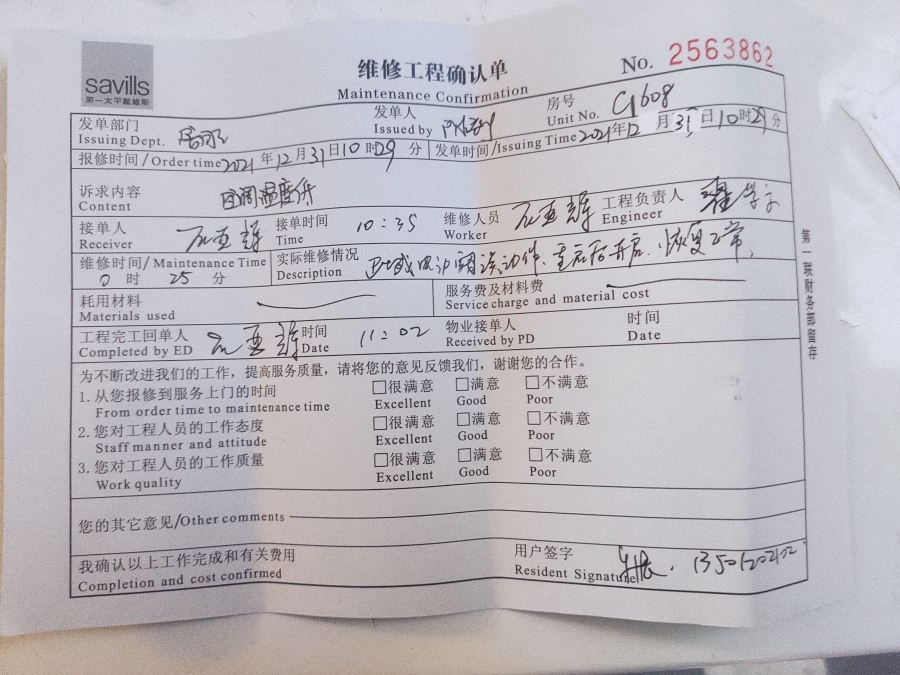 savills
第一太平戴维斯
维修工程确认单
Maintenance Confirmation
No. 2563862
发单部门 发单人 房号
Issuing Dept. 客服 Issued by Unit No. C1608
报修时间/Order time 2021年12月31日10时29分 发单时间/Issuing Time 2021年12月31日10时29分
诉求内容
Content 空调温度低
接单人 接单时间 维修人员 工程负责人
Receiver Time 10:35 Worker Engineer
维修时间/Maintenance Time 实际维修情况
0时25分 Description 重启后开启.恢复正常.
耗用材料 服务费及材料费
Materials used Service charge and material cost
工程完工回单人 时间 物业接单人 时间
Completed by ED Date 11:02 Received by PD Date
为不断改进我们的工作，提高服务质量，请将您的意见反馈我们，谢谢您的合作。
1. 从您报修到服务上门的时间 □很满意 □满意 □不满意
From order time to maintenance time Excellent Good Poor
2. 您对工程人员的工作态度 □很满意 □满意 □不满意
Staff manner and attitude Excellent Good Poor
3. 您对工程人员的工作质量 □很满意 □满意 □不满意
Work quality Excellent Good Poor
您的其它意见/Other comments
我确认以上工作完成和有关费用 用户签字
Completion and cost confirmed Resident Signature
第一联财务部留存